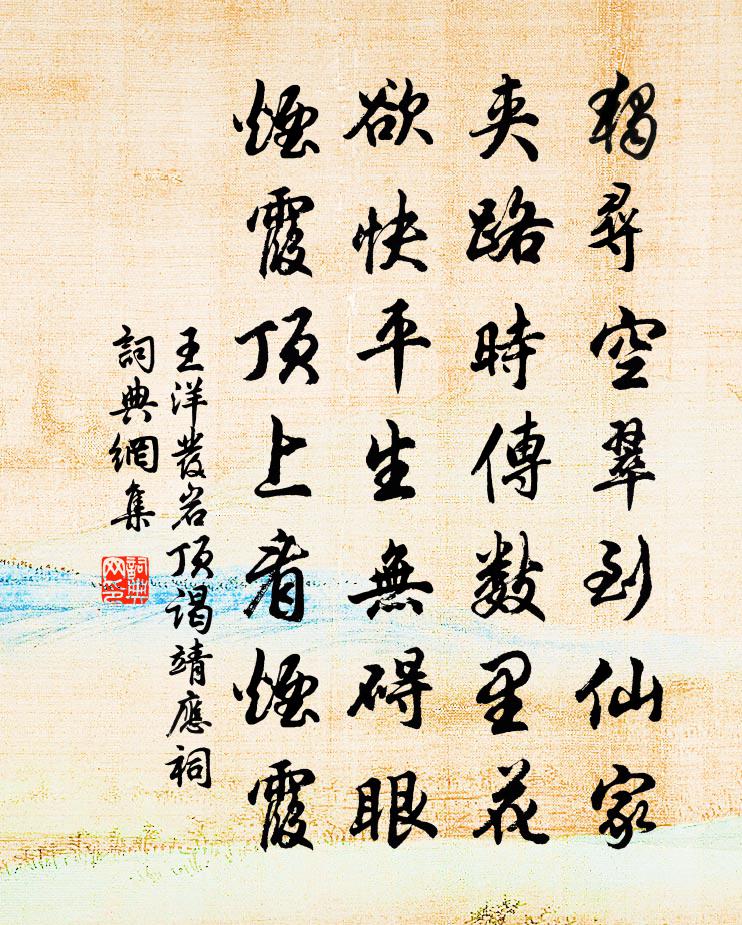 獨尋空翠到仙家
夾路時傳數里花
欲快平生無礙眼
煙霞頂上看煙霞
王洋發岩頂謁靖應祠
詞典網集
詞典網印